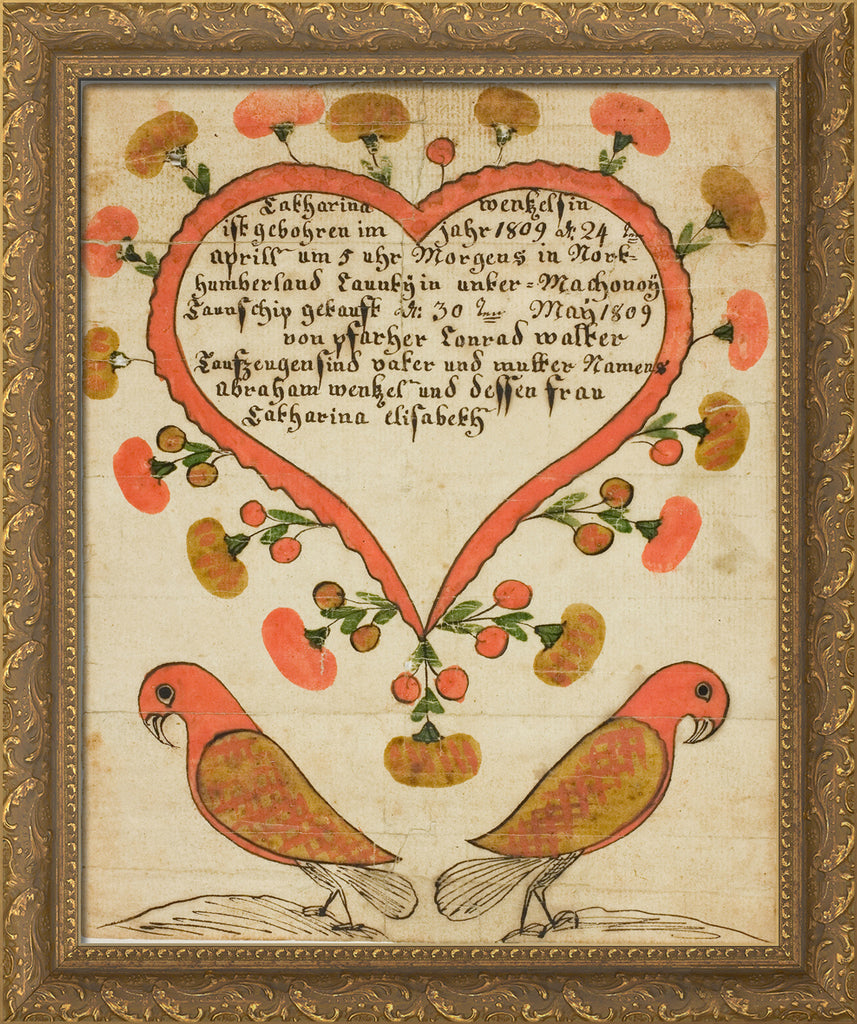 Catharina wentzelsin
ist gebohren im jahr 1809 d: 24 ten
aprill um 5 uhr Morgens in Nort-
humberland Caunty in unter = Machonoy
Taunschip getauft d: 30 ten May 1809
von pfarher Conrad walter
Taufzeugen sind vater und mutter Namens
abraham wentzel und dessen frau
Catharina elisabeth